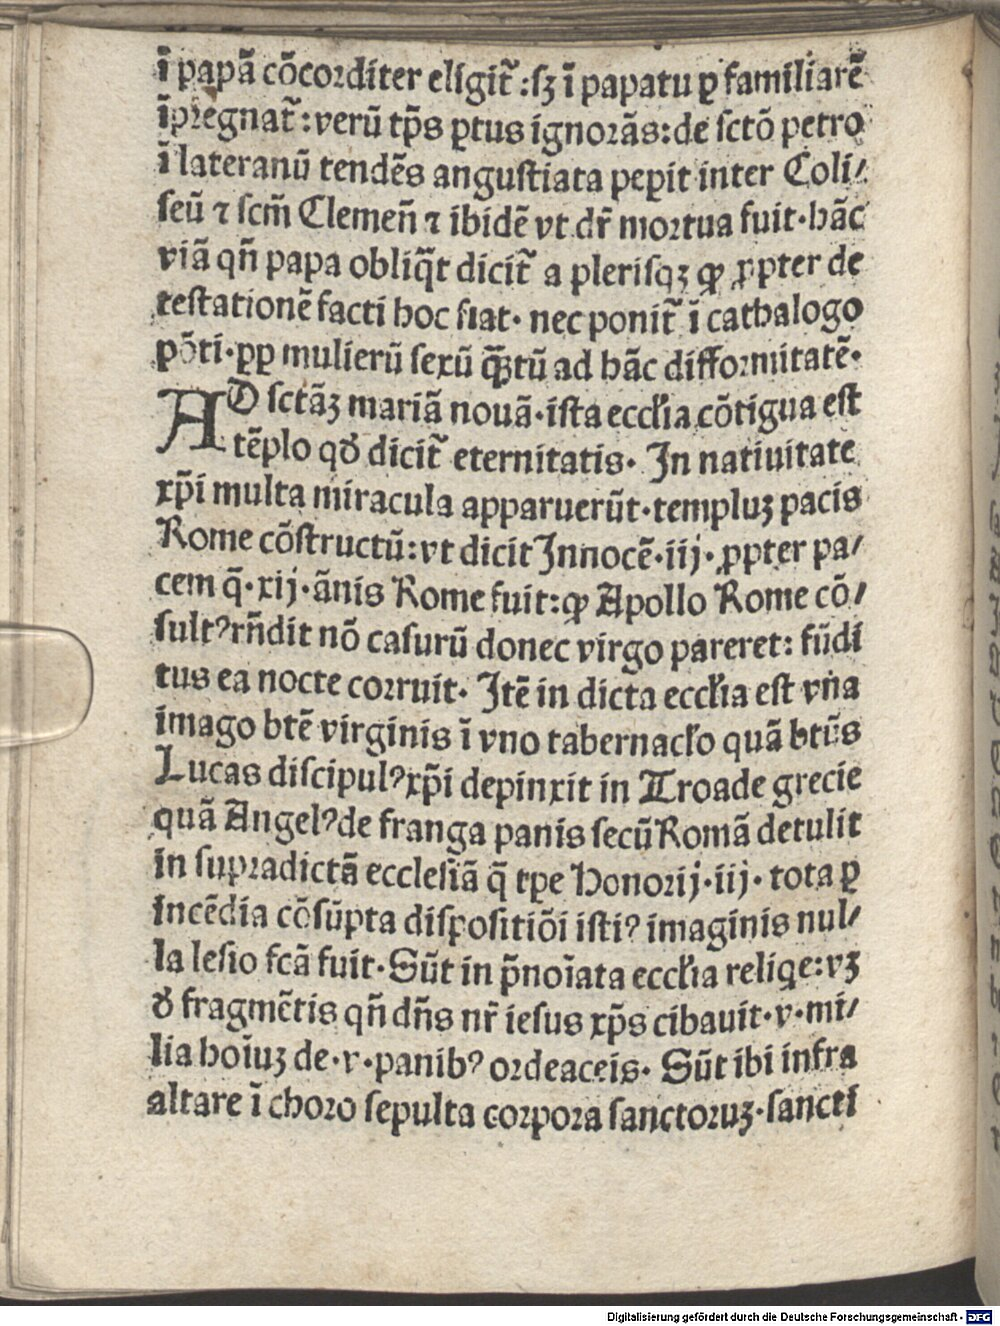 ī papā cōcorditer eligit̃ :sꝫ ī papatu ꝑ familiarē
īpregnat̃ : verū tp̄s ꝑtus ignorās: de sctō petro
ī lateranū tendēs angustiata peꝑit inter Coli/
seū ⁊ scm̄ Clemen̄ ⁊ ibidē vt dr̄ mortua fuit· hāc
viā qn̄ papa obliq̄t dicit̃ a plerisqꝫ ꝙ ꝓpter de
testationē facti hoc fiat· nec ponit̃ ī cathalogo
pōti· ꝓp mulierū sexū q̄ꝫtū ad hāc difformitatē·
AD sctāꝫ mariā nouā· ista eccl̄ia cōtigua est
tēplo qd̄ dicit̃ eternitatis· In natiuitate
xp̄i multa miracula apparuerūt· templuꝫ pacis
Rome cōstructū: vt dicit Innocē· iij· ꝓpter pa/
cem q̄· xij· ānis Rome fuit: ꝙ Apollo Rome cō/
sultꝰ rn̄dit nō casurū donec virgo pareret: fūdi
tus ea nocte corruit· Itē in dicta eccl̄ia est vna
imago btē virginis ī vno tabernacl̄o quā btūs
Lucas discipulꝰ xp̄i depinxit in Troade grecie
quā Angelꝰ de franga panis secū Romā detulit
in supradictā ecclesiā q̄ tꝑe Honorij· iij· tota ꝑ
incēdia cōsūpta dispositiōi istiꝰ imaginis nul/
la lesio fcā fuit· Sūt in p̄noīata eccl̄ia reliqe: vꝫ
d̄ fragmētis qn̄ dn̄s nr̄ iesus xp̄s cibauit· v· mi/
lia hoīuꝫ de· v· panibꝰ ordeaceis· Sūt ibi infra
altare ī choro sepulta corpora sanctoruꝫ· sancti
Digitalisierung gefördert durch die Deutsche Forschungsgemeinschaft - DFG